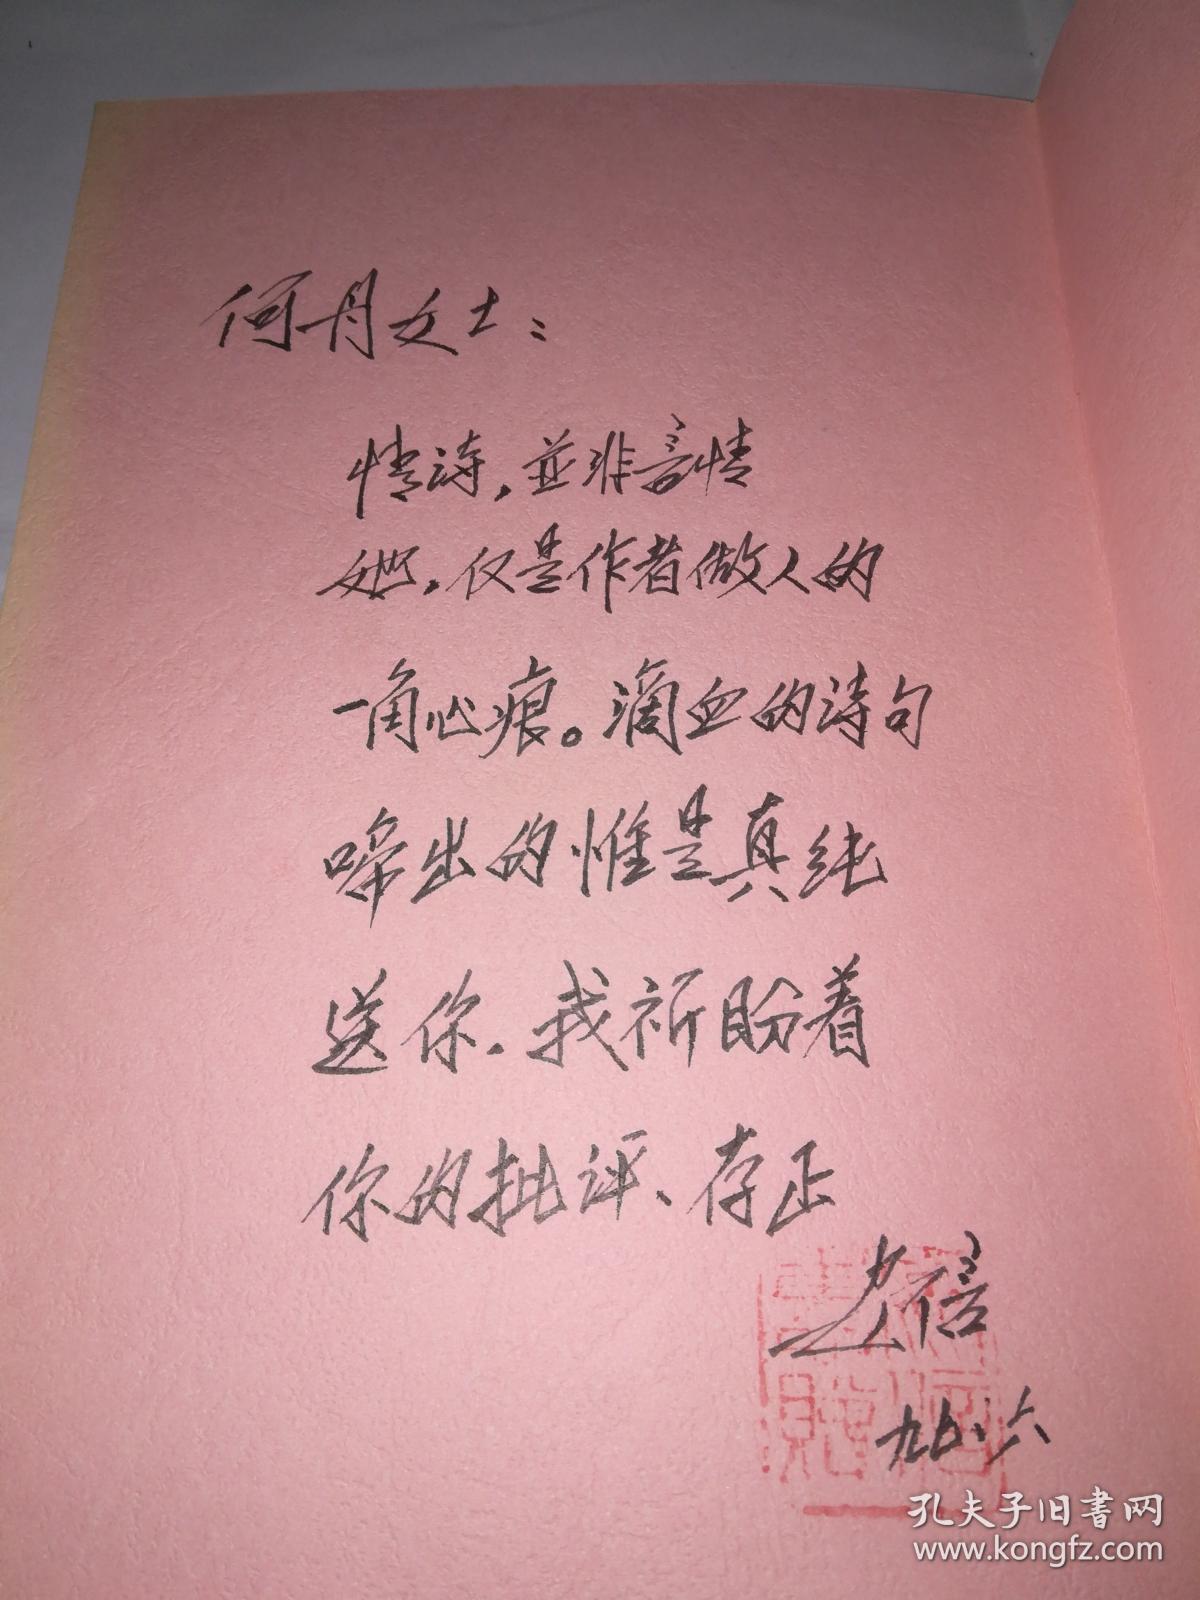 何丹女士：
情诗，並非言情
她，仅是作者做人的
一角心痕。滴血的诗句
啼出的惟是真纯
送你．我祈盼着
你的批评、存正
信
九七．六
孔夫子旧书网
www.kongfz.com